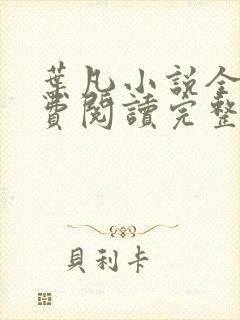 葉凡小説全
費閱讀完整
貝利卡